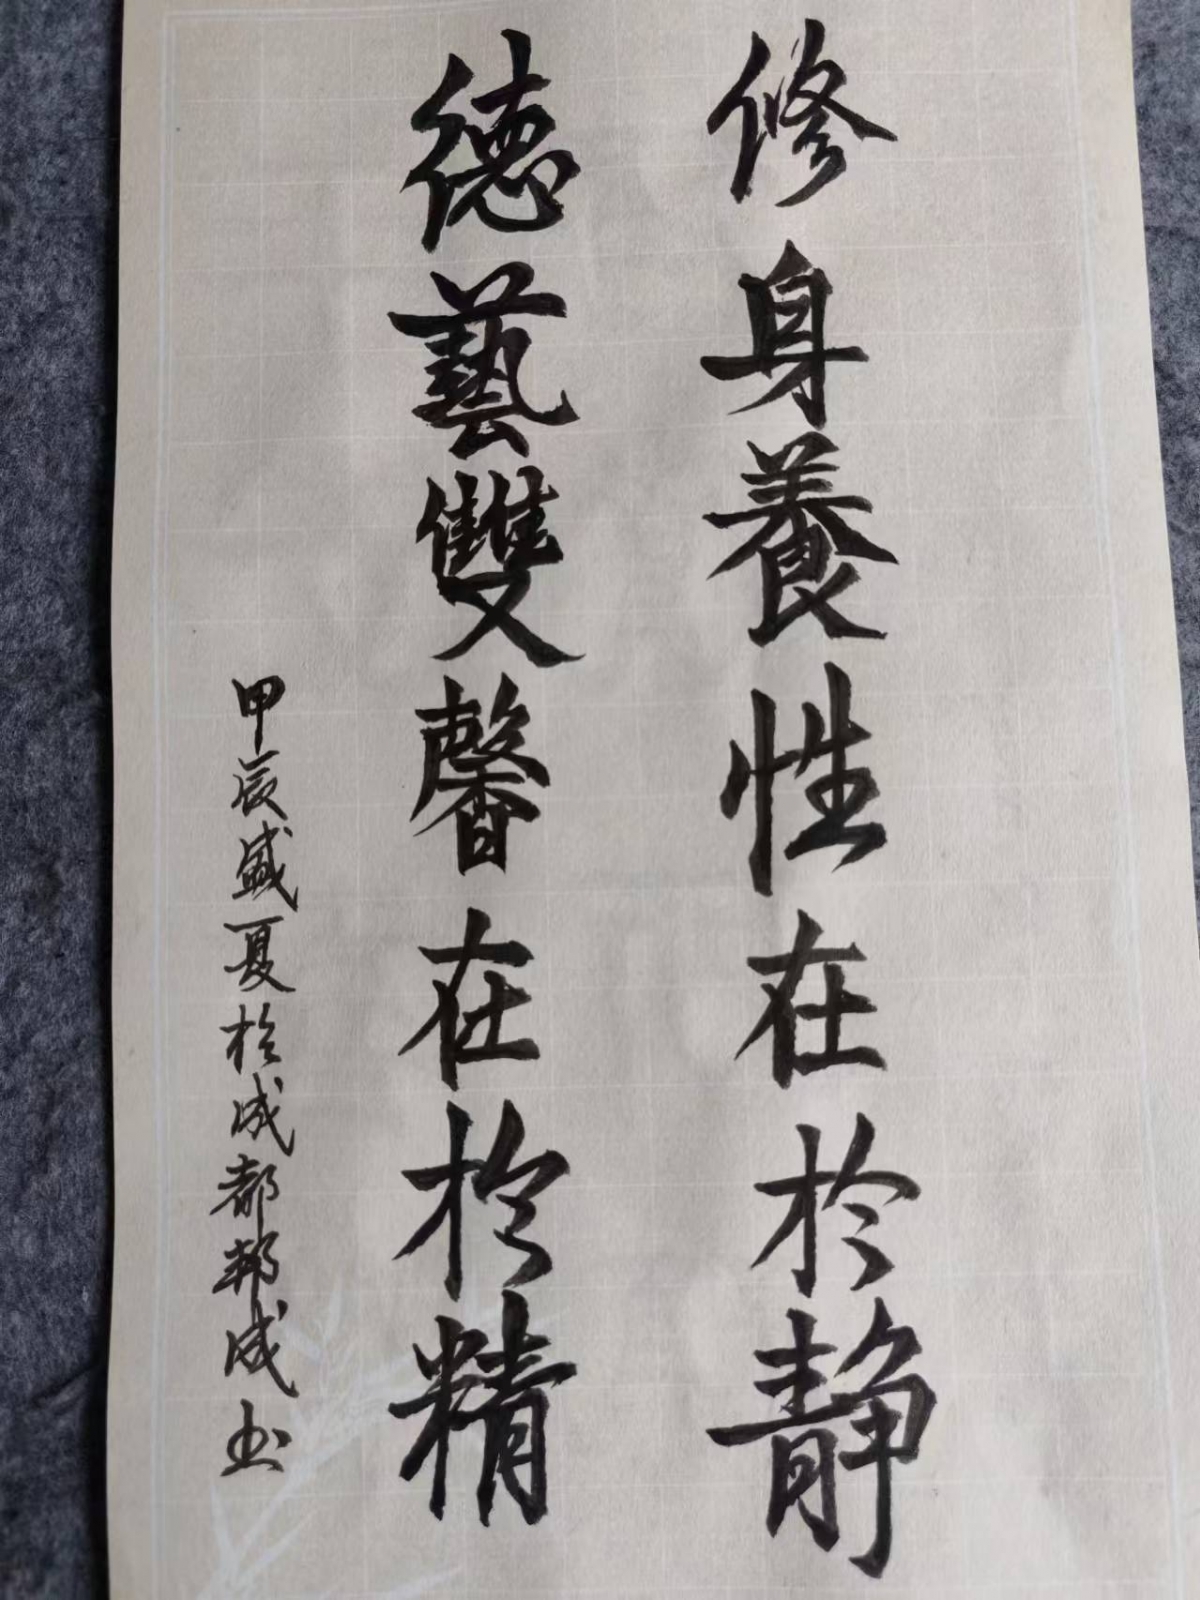 修身養性在於静
德藝雙馨在於精
甲辰盛夏於成都邦成书